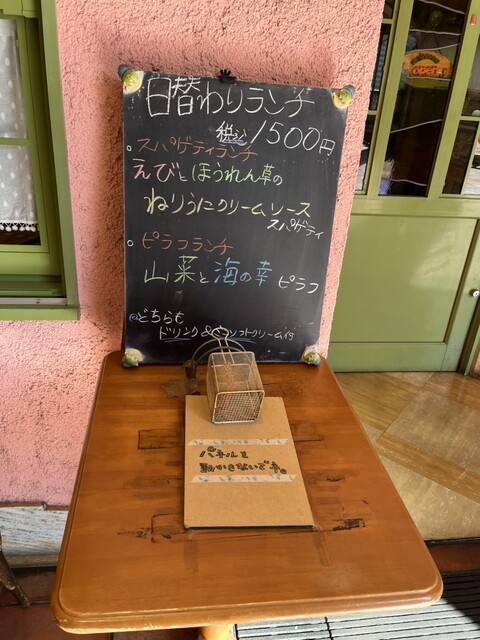 日替わりランチ
税込 1500円
。スパゲティランチ
えびとほうれん草の
ねりうにクリームソース
スパゲティ
。ピラフランチ
山菜と海の幸 ピラフ
どちらも
ドリンク&ソフトクリーム付
パネルを
動かさないで